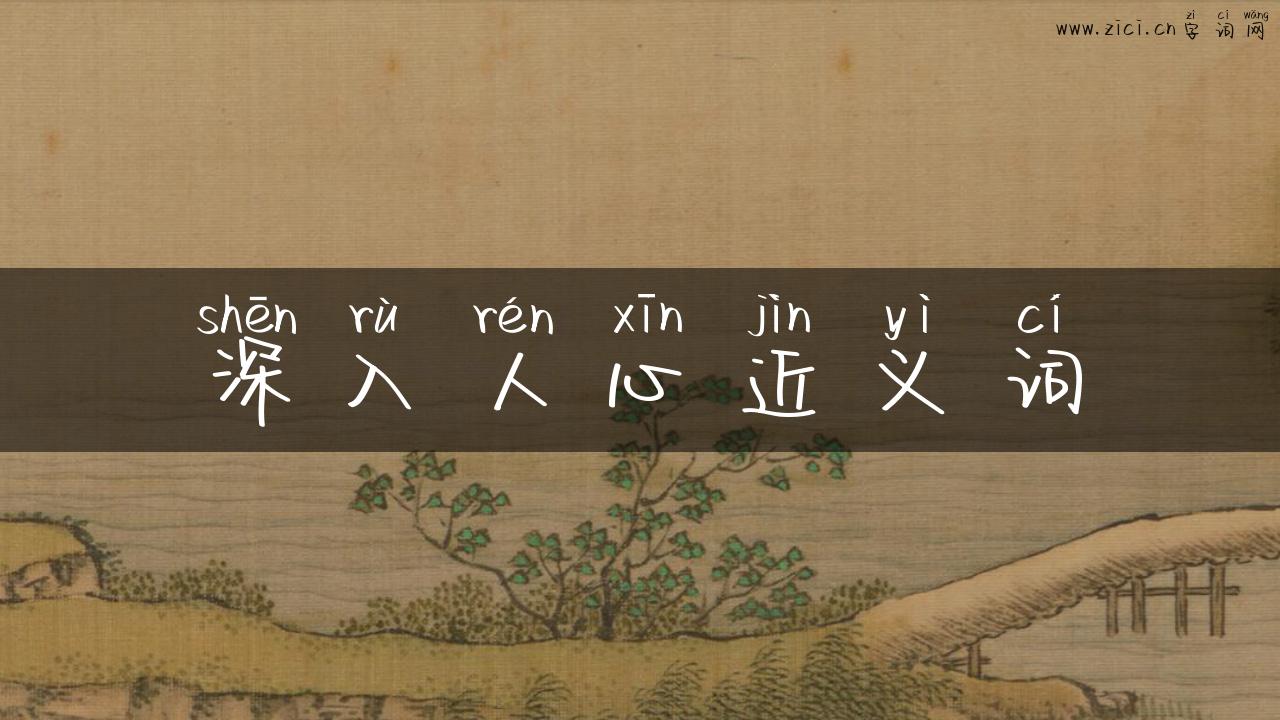 zì cí wǎng
www.zici.cn 字词网
shēn rù rén xīn jìn yì cí
深入人心近义词